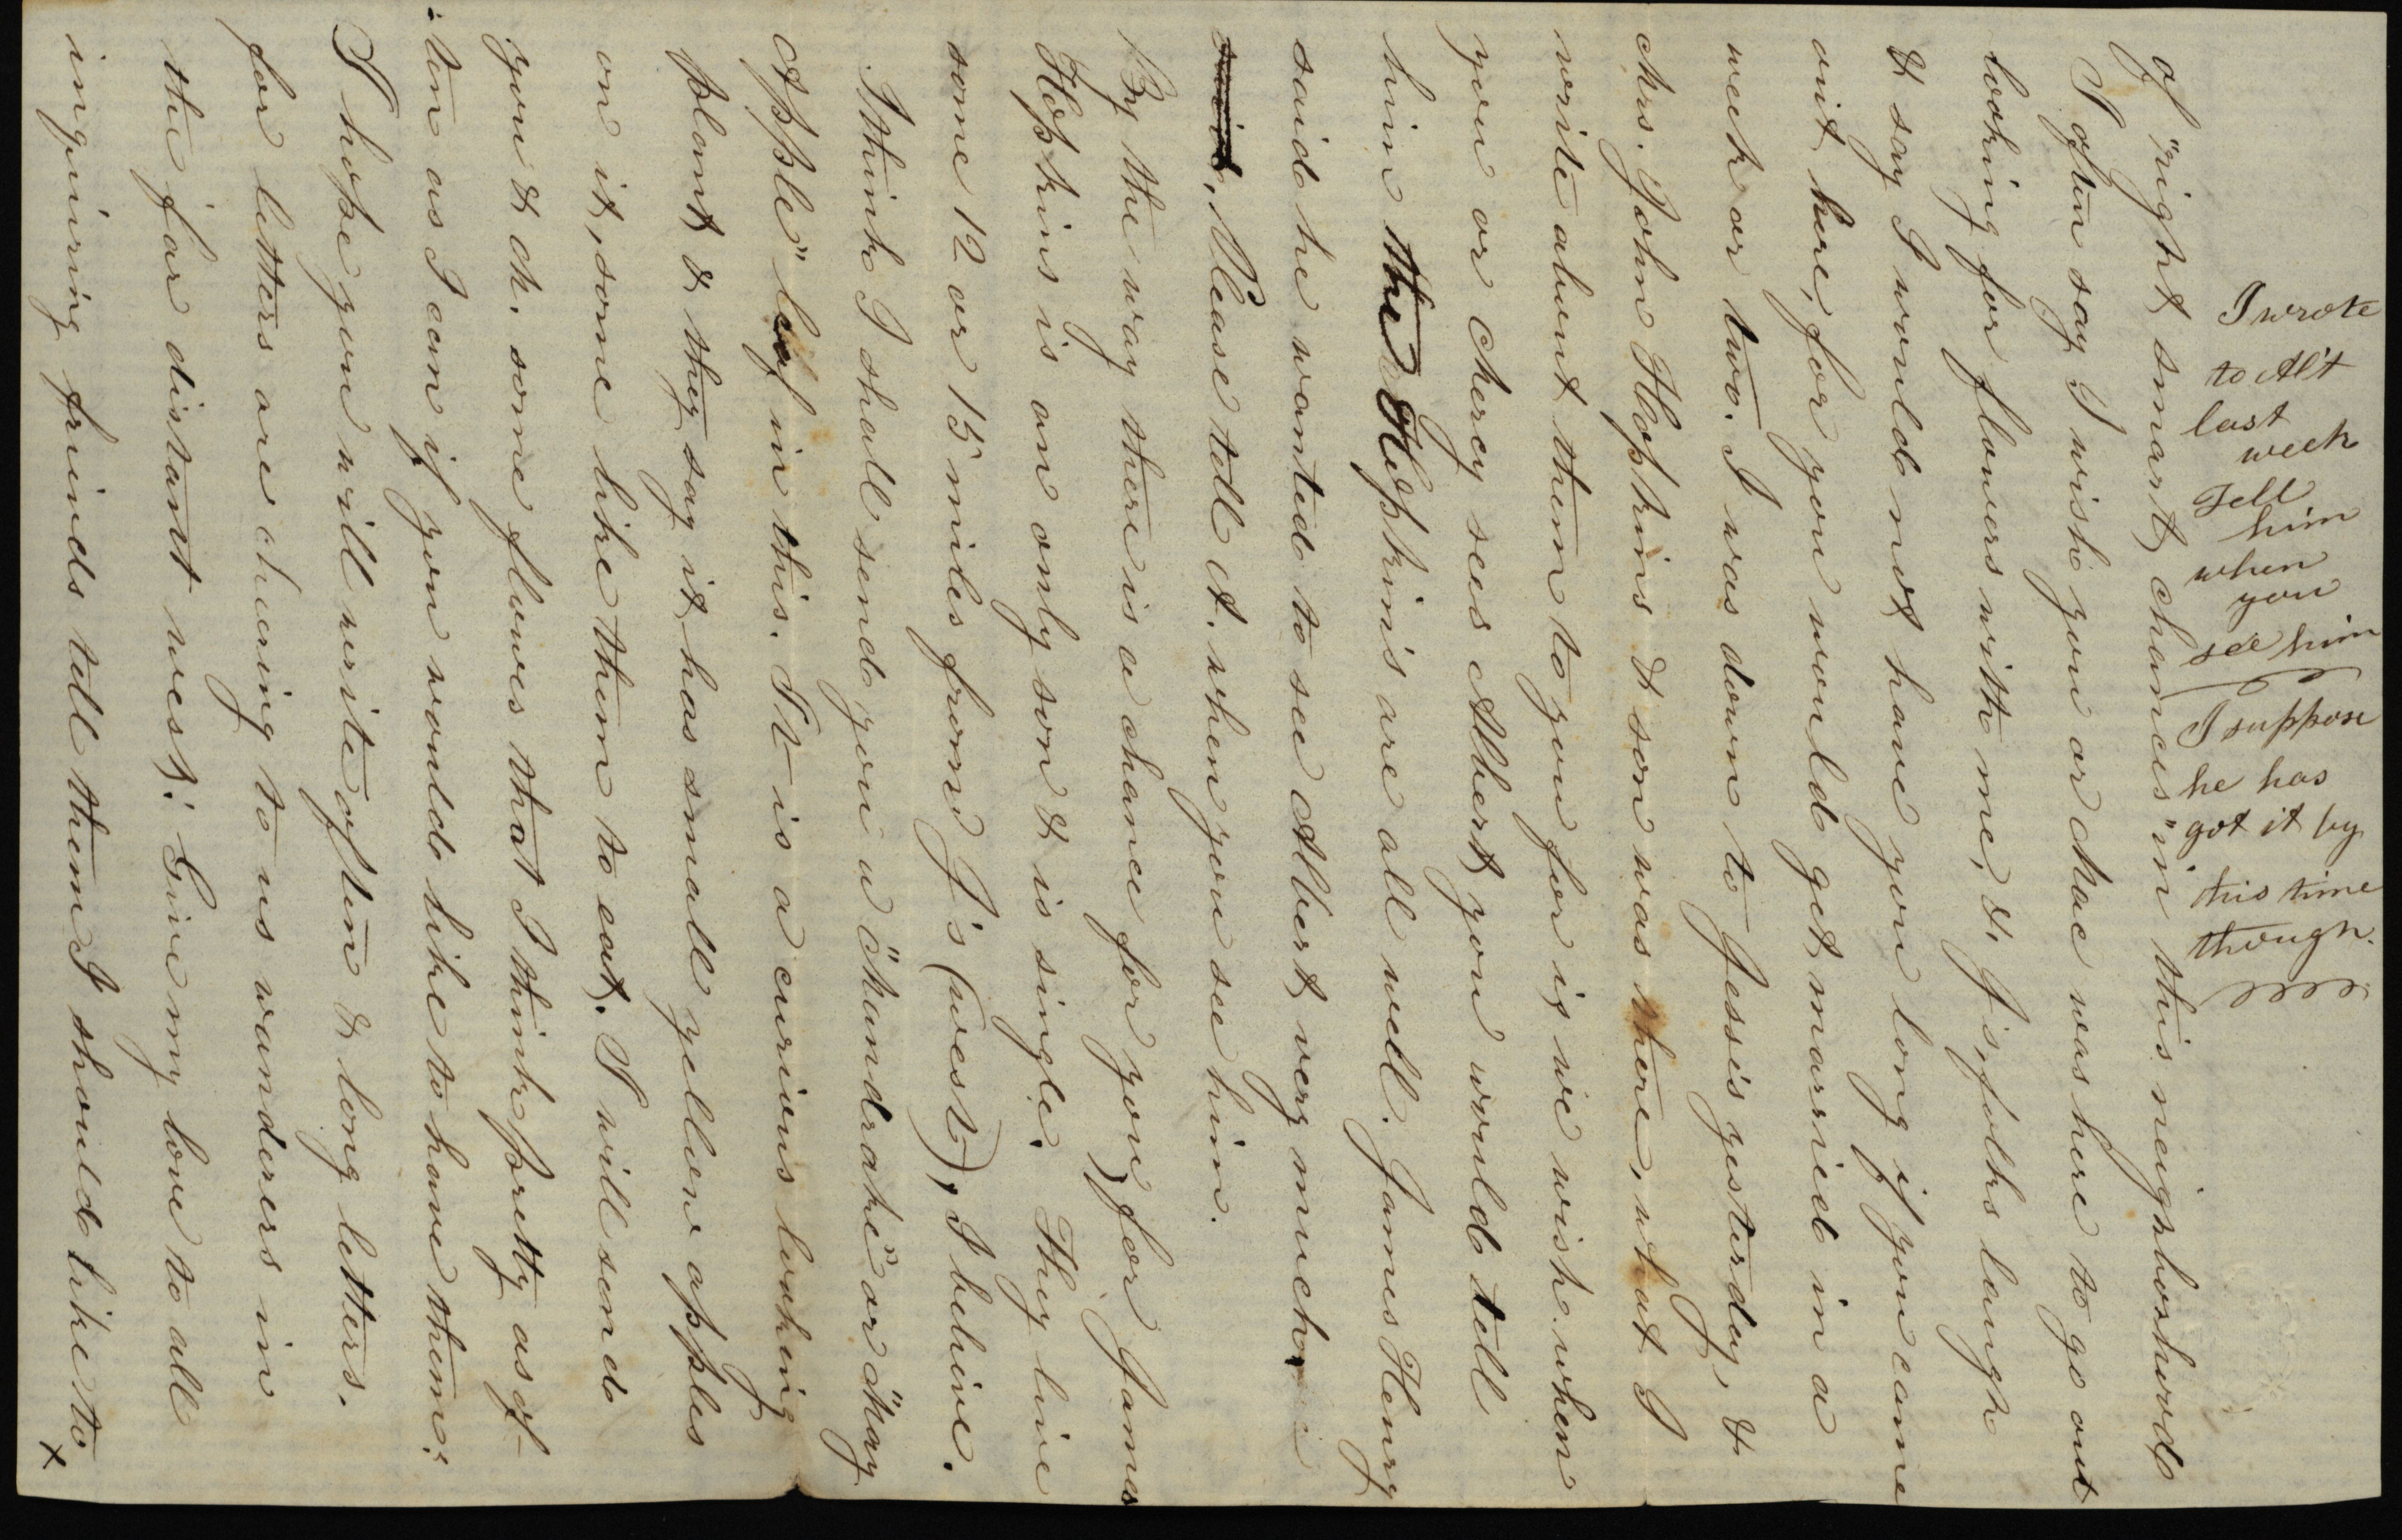 I wrote
to Al't
last
week
Tell
him
when
you
see him
I suppose
he has
got it by
this time
though.
of "right smart chances" in this neighborhood
I often say I wish you or Mae was here to go out
looking for flowers with me, & J's, folks laugh
& say I would not have you long if you came
out here, for you would get married in a
week or two. I was down to Jessis yesterday, &
Mrs. John Hopkins & son was there, what I
write about them to you for is we wish when
you or Mercy sees Albert you would tell
him the Hopkins are all well. James Henry
said he wanted to see Albert very much
said, Please tell A. when you see him.
By the way there is a chance for you, for James
Hopkins is an only son & is single. They live
some 12 or 15 miles from J's (west), I believe.
I think I shall send you a "mandrake" or "May
Apple" leaf in this. It is a curious looking
plant & they say it has small yellow apples
on it, some like them to eat. I will send
you & M. some flowers that I think pretty as of-
ten as I can if you would like to have them.
I hope you will write often & long letters.
for letters are cheering to us wanderers in
the far distant west. Give my love to all
inquiring friends tell them I should like to
x